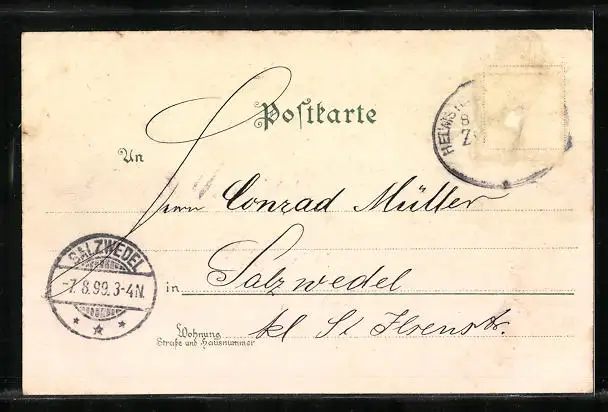 Postkarte
HELMST
8
Z
An
Herrn Conrad Müller
SALZWEDEL
-7.8.99.3-4N.
in Salzwedel
Wohnung
Straße und Hausnummer
kl St Ilsenstr.